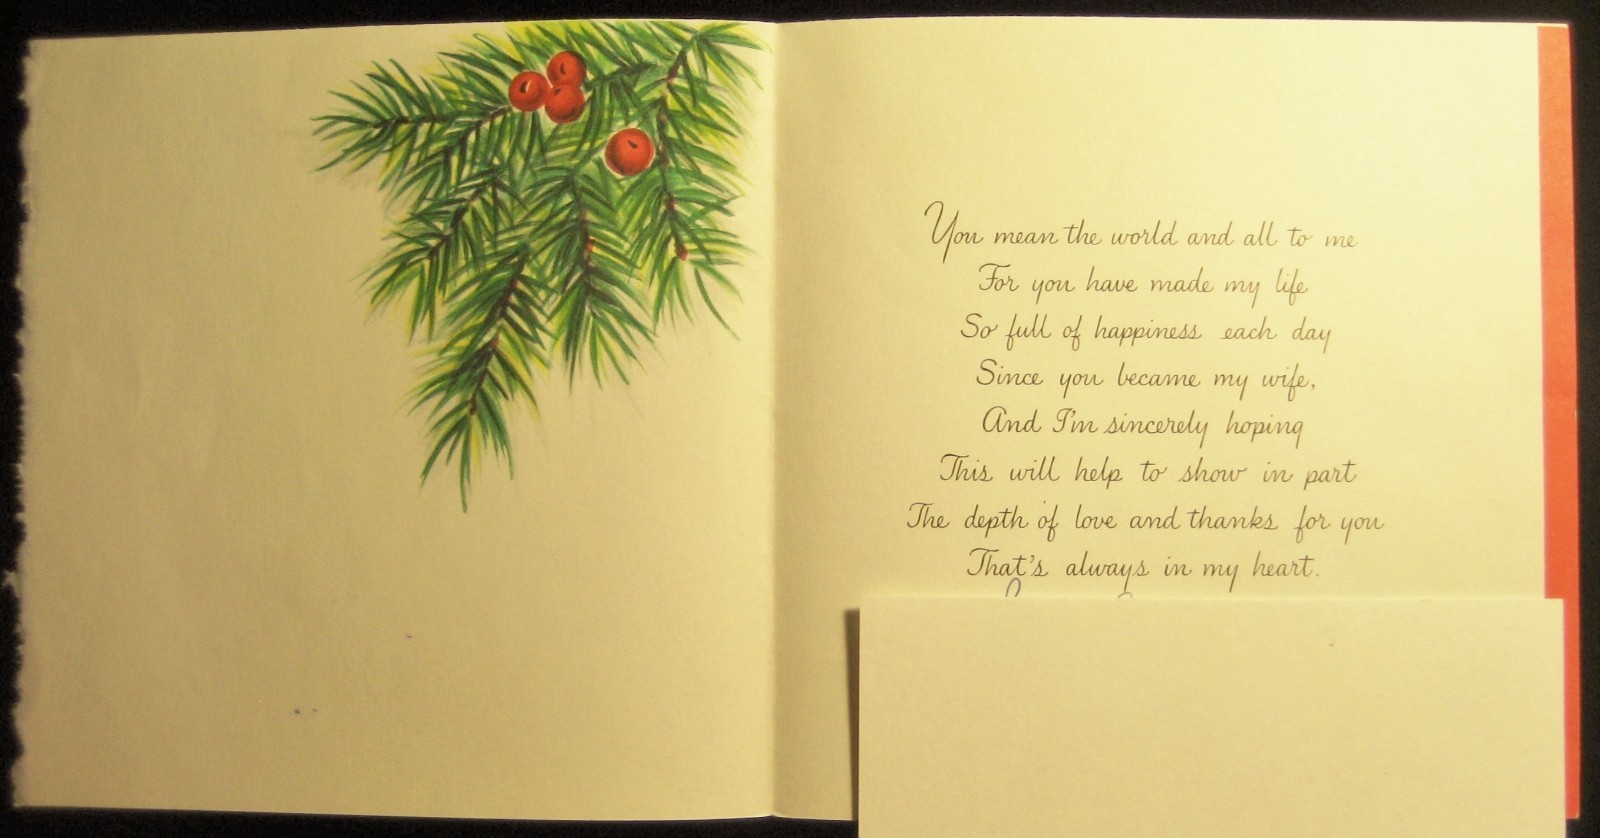 You mean the world and all to me
For you have made my life
So full of happiness each day
Since you became my wife,
And I'm sincerely hoping
This will help to show in part
The depth of love and thanks for you
That's always in my heart.